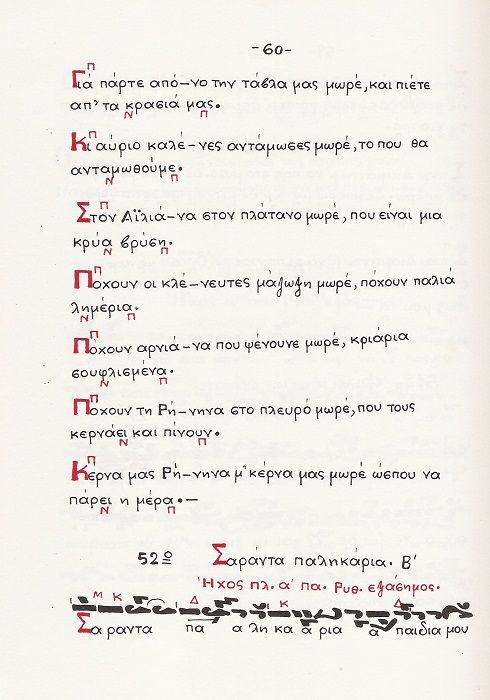 -60-
Γιά πάρτε από-νο την τάβλα μας μωρέ, και πιέτε
απ' τα κρασιά μας.
Κι αύριο καλέ-νες αντάμωσες μωρέ, το που θα
ανταμωθούμε.
Στον Αϊλιά-να στον πλάτανο μωρέ, που είναι μια
κρύα βρύση.
Πόχουν οι κλέ-νευτες μάζωξη μωρέ, πόχουν παλιά
λημέρια.
Πόχουν αρνιά-να που ψένουνε μωρέ, κριάρια
σουφλισμένα.
Πόχουν τη Ρή-νηνα στο πλευρό μωρέ, που τους
κερνάει και πίνουν.
Κέρνα μας Ρή-νηνα μ' κέρνα μας μωρέ ώσπου να
πάρει η μέρα.-
52ο Σαράντα παληκάρια. Β'
Ήχος πλ. α' πα. Ρυθ. εξάσημος.
Σα ραντα πα α λη κα ά ρια α παιδια μου